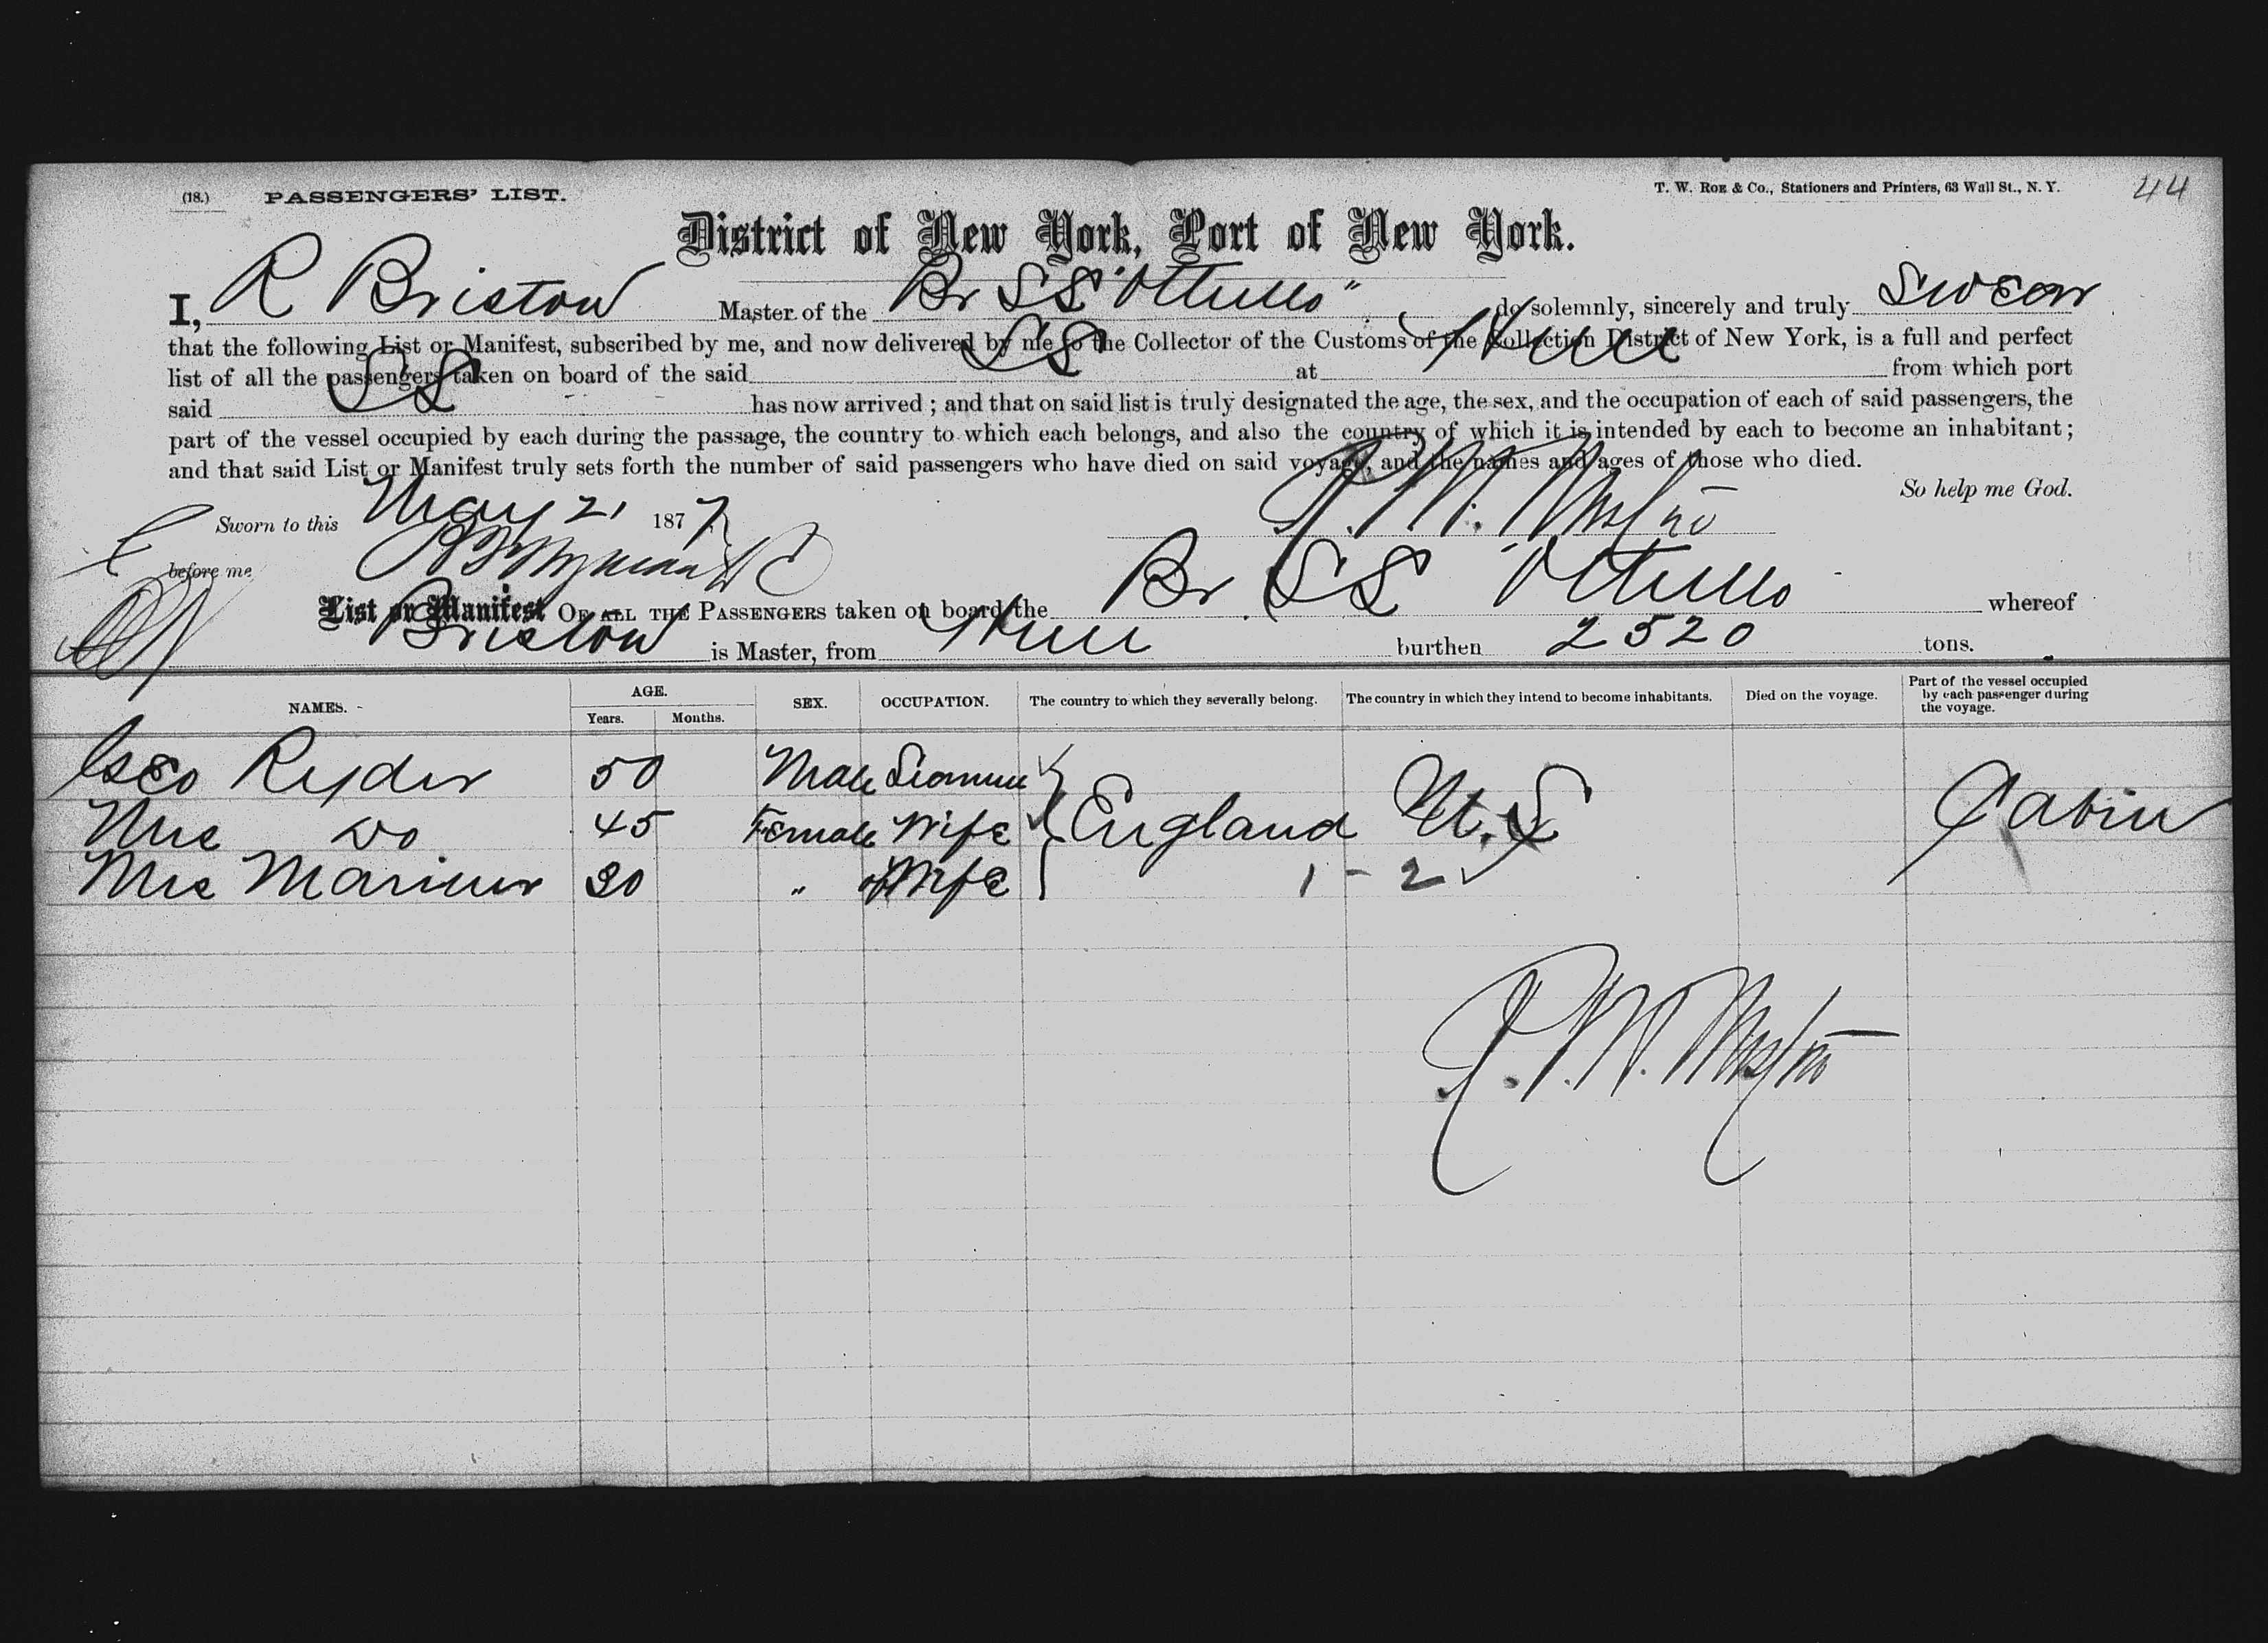 (18.) PASSENGERS' LIST. T. W. ROE & Co., Stationers and Printers, 63 Wall St., N. Y. 44
District of New York, Port of New York.
I, R Bristow Master of the Br SS "Othello" do solemnly, sincerely and truly swear
that the following List or Manifest, subscribed by me, and now delivered by me to the Collector of the Customs of the Collection District of New York, is a full and perfect
list of all the passengers taken on board of the said SS at Hull from which port
said SS has now arrived ; and that on said list is truly designated the age, the sex, and the occupation of each of said passengers, the
part of the vessel occupied by each during the passage, the country to which each belongs, and also the country of which it is intended by each to become an inhabitant ;
and that said List or Manifest truly sets forth the number of said passengers who have died on said voyage, and the names and ages of those who died.
So help me God.
Sworn to this May 21 1877
before me
List or Manifest OF ALL THE PASSENGERS taken on board the Br. SS "Othello whereof
Bristow is Master, from Hull burthen 2520 tons.
NAMES. AGE. SEX. OCCUPATION. The country to which they severally belong. The country in which they intend to become inhabitants. Died on the voyage. Part of the vessel occupied by each passenger during the voyage.
Years. Months.
Geo Ryder 50 Male
Mrs Do 45 Female Wife England U.S Cabin
Mrs Mariner 30 " Wife 1 - 2